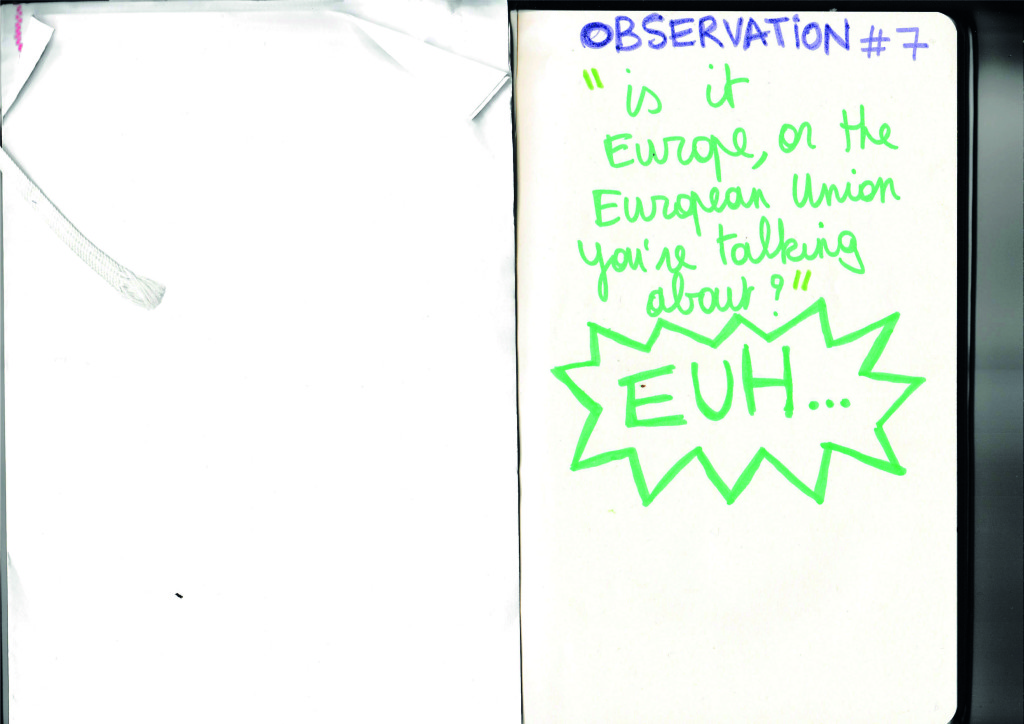 OBSERVATION #7
"is it
Europe, or the
European Union
you're talking
about?"
EUH...